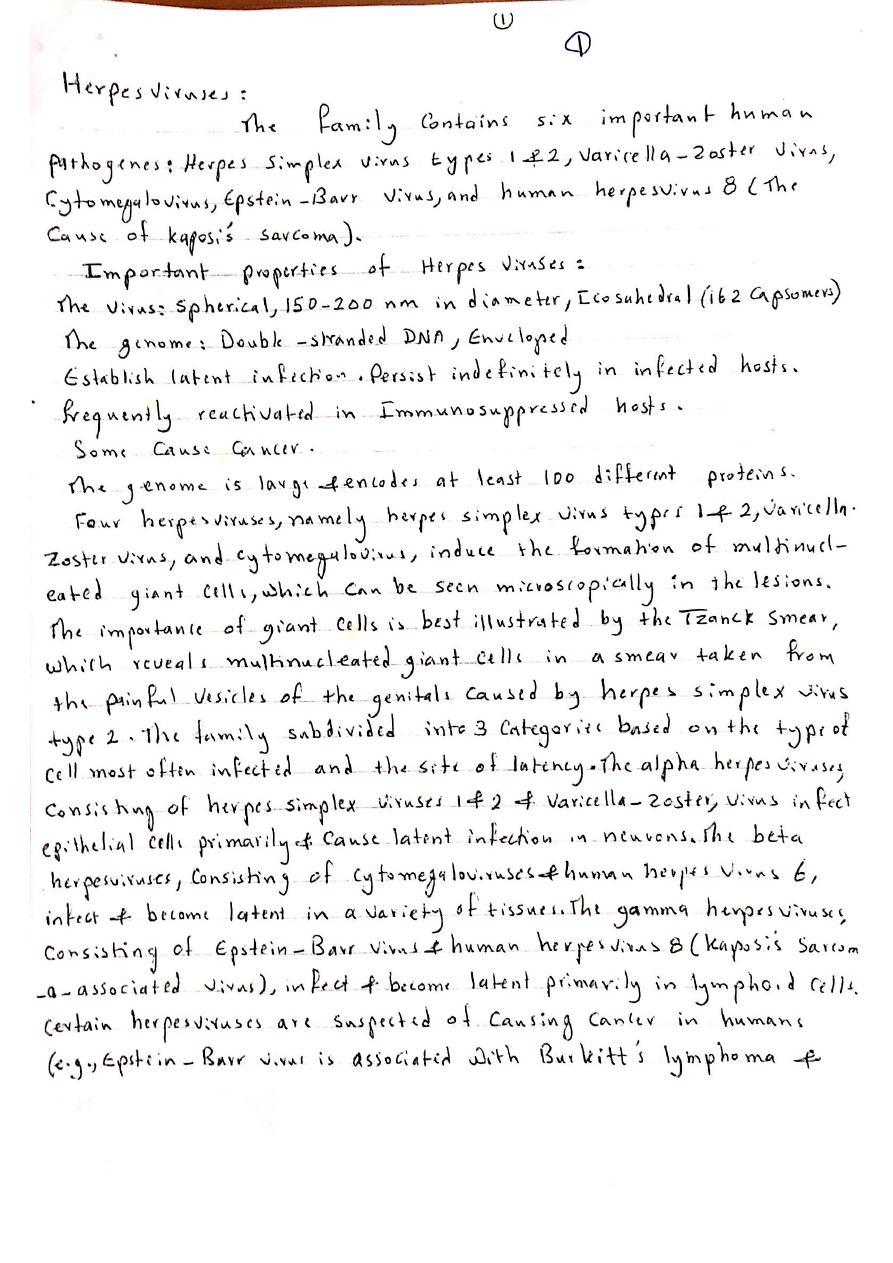 ①
①
Herpesviruses:
The family Contains six important human
pathogenes: Herpes simplex virus types 1 & 2, Varicella-Zoster virus,
Cytomegalovirus, Epstein-Barr virus, and human herpesvirus 8 (The
Cause of kaposi's sarcoma).
Important properties of Herpes viruses:
The virus: Spherical, 150-200 nm in diameter, Icosahedral (162 Capsomers)
The genome: Double-stranded DNA, Enveloped
Establish latent infection. Persist indefinitely in infected hosts.
frequently reactivated in Immunosuppressed hosts.
Some Cause Cancer.
The genome is large & encodes at least 100 different proteins.
Four herpesviruses, namely herpes simplex virus types 1 & 2, Varicella-
Zoster virus, and cytomegalovirus, induce the formation of multinucl-
eated giant cells, which can be seen microscopically in the lesions.
The importance of giant cells is best illustrated by the Tzanck smear,
which reveals multinucleated giant cells in a smear taken from
the painful vesicles of the genitals caused by herpes simplex virus
type 2. The family subdivided into 3 Categories based on the type of
cell most often infected and the site of latency. The alpha herpesviruses,
consisting of herpes simplex viruses 1 & 2 & Varicella-Zoster, virus infect
epithelial cells primarily & cause latent infection in neurons. The beta
herpesviruses, Consisting of Cytomegaloviruses & human herpes virus 6,
infect & become latent in a variety of tissues. The gamma herpesviruses,
Consisting of Epstein-Barr virus & human herpesvirus 8 (Kaposi's Sarcom
-a-associated virus), infect & become latent primarily in lymphoid cells.
Certain herpesviruses are suspected of Causing Cancer in humans
(e.g., Epstein-Barr virus is associated with Burkitt's lymphoma &